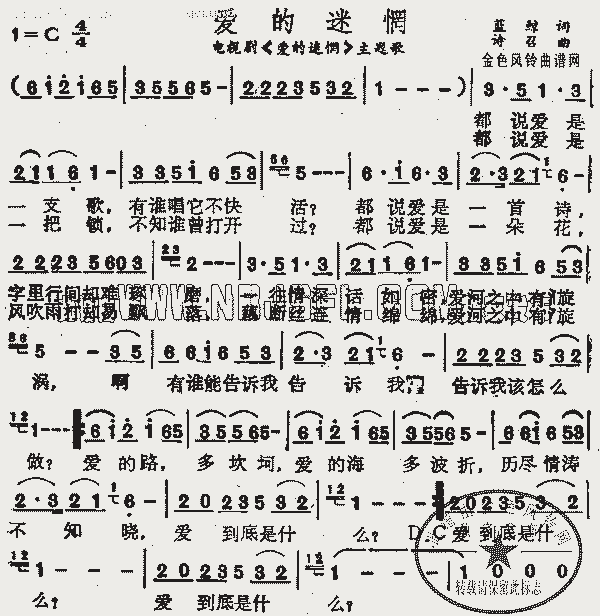 爱的迷惘
1=C 4/4
电视剧《爱的迷惘》主题歌
词
诗召 曲
金色风铃曲谱网
(6 1 2 1 6 5 | 3 5 5 6 5 - | 2 2 2 3 5 3 2 | 1 - - - ) | 3 · 5 1 · 3 |
都 说爱 是
都 说爱 是
2 1 1 6 1 - | 3 3 5 1 6 5 3 | 6 6 5 - - - | 6 · 1 6 · 3 | 2 · 3 2 1 1 6 - |
一 支 歌, 有谁唱它不快 活? 都 说爱是 一 首 诗,
一 把 锁, 不知谁曾打开 过? 都 说爱是 一 朵 花,
2 2 2 3 5 6 0 3 | 2 3 2 - - - | 3 · 5 1 · 3 | 2 1 1 6 1 - | 3 3 5 1 6 5 3 |
字里行间却难 磨, 一 往情深 话 如 密,爱河之中有漩
风吹雨打却易飘 落, 藕断丝连 情 绵 绵,爱河之中有漩
6 6 5 - - 3 5 | 6 1 6 1 6 5 3 | 2 · 3 2 1 1 6 - | 2 2 2 3 5 3 2 |
涡, 啊 有谁能告诉我 告 诉 我, 告诉我该怎么
1 2 1 - - - | 6 1 2 1 6 5 | 3 5 5 6 5 - | 6 1 2 1 6 5 | 3 5 5 6 5 - | 6 6 1 6 5 3 |
做? 爱 的路, 多 坎 坷, 爱 的海 多 波 折, 历尽情涛
2 · 3 2 1 | 1 6 - - | 2 0 2 3 5 3 2 | 1 2 1 - - - | 2 0 2 3 5 3 2 |
不 知 晓, 爱 到底是什 么? D.C 爱 到底是什
1 2 1 - - - | 2 0 2 2 3 5 3 2 | 1 2 1 - - - | 1 0 0 0
么? 爱 到底是什 么?
转载请保留此标志